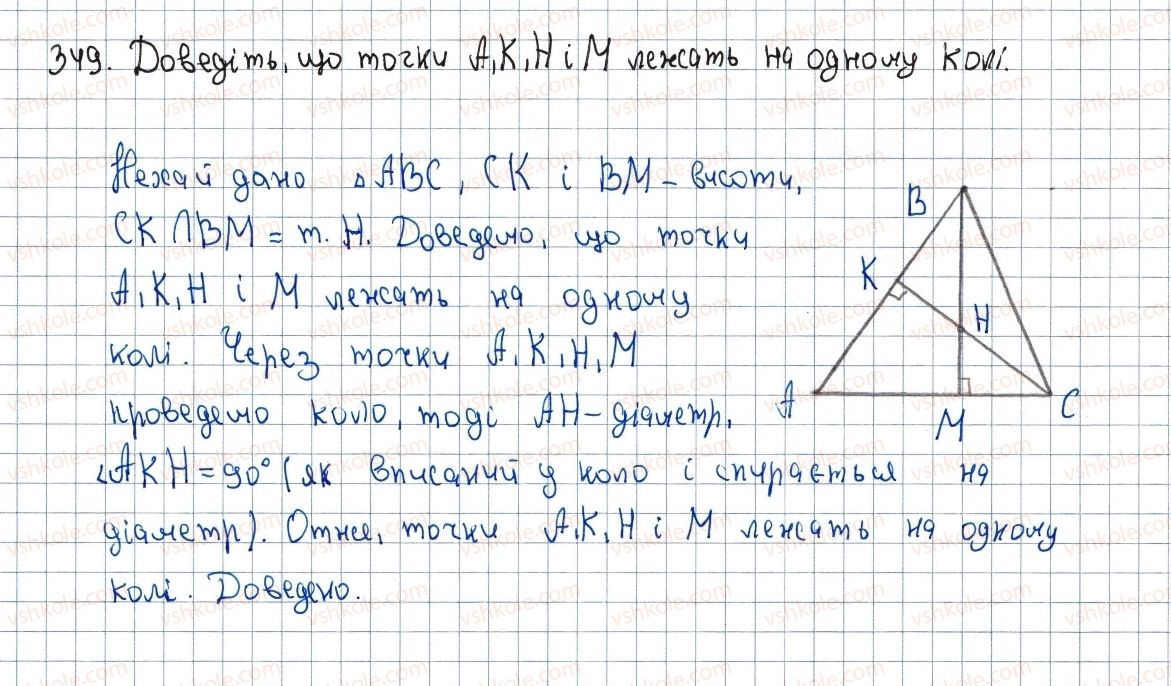 349. Доведіть, що точки A, K, H і M лежать на одному колі.
Нехай дано △ ABC, CK і BM - висоти,
CK ∩ BM = т. H. Доведемо, що точки
A, K, H і M лежать на одному
колі. Через точки A, K, H, M
проведемо коло, тоді AH - діаметр,
∠AKH = 90° (як вписаний у коло і спирається на
діаметр). Отже, точки A, K, H і M лежать на одному
колі. Доведено.
B
K
H
A
M
C